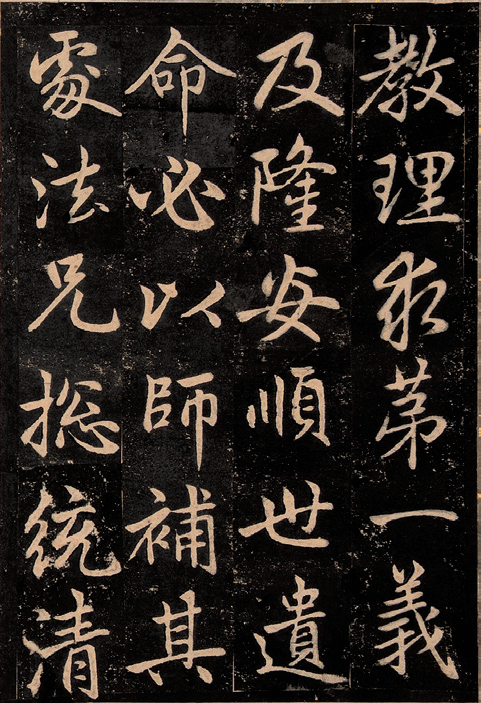 教理求第一義
及隆安順世遺
命必以師補其
處法兄揔統清